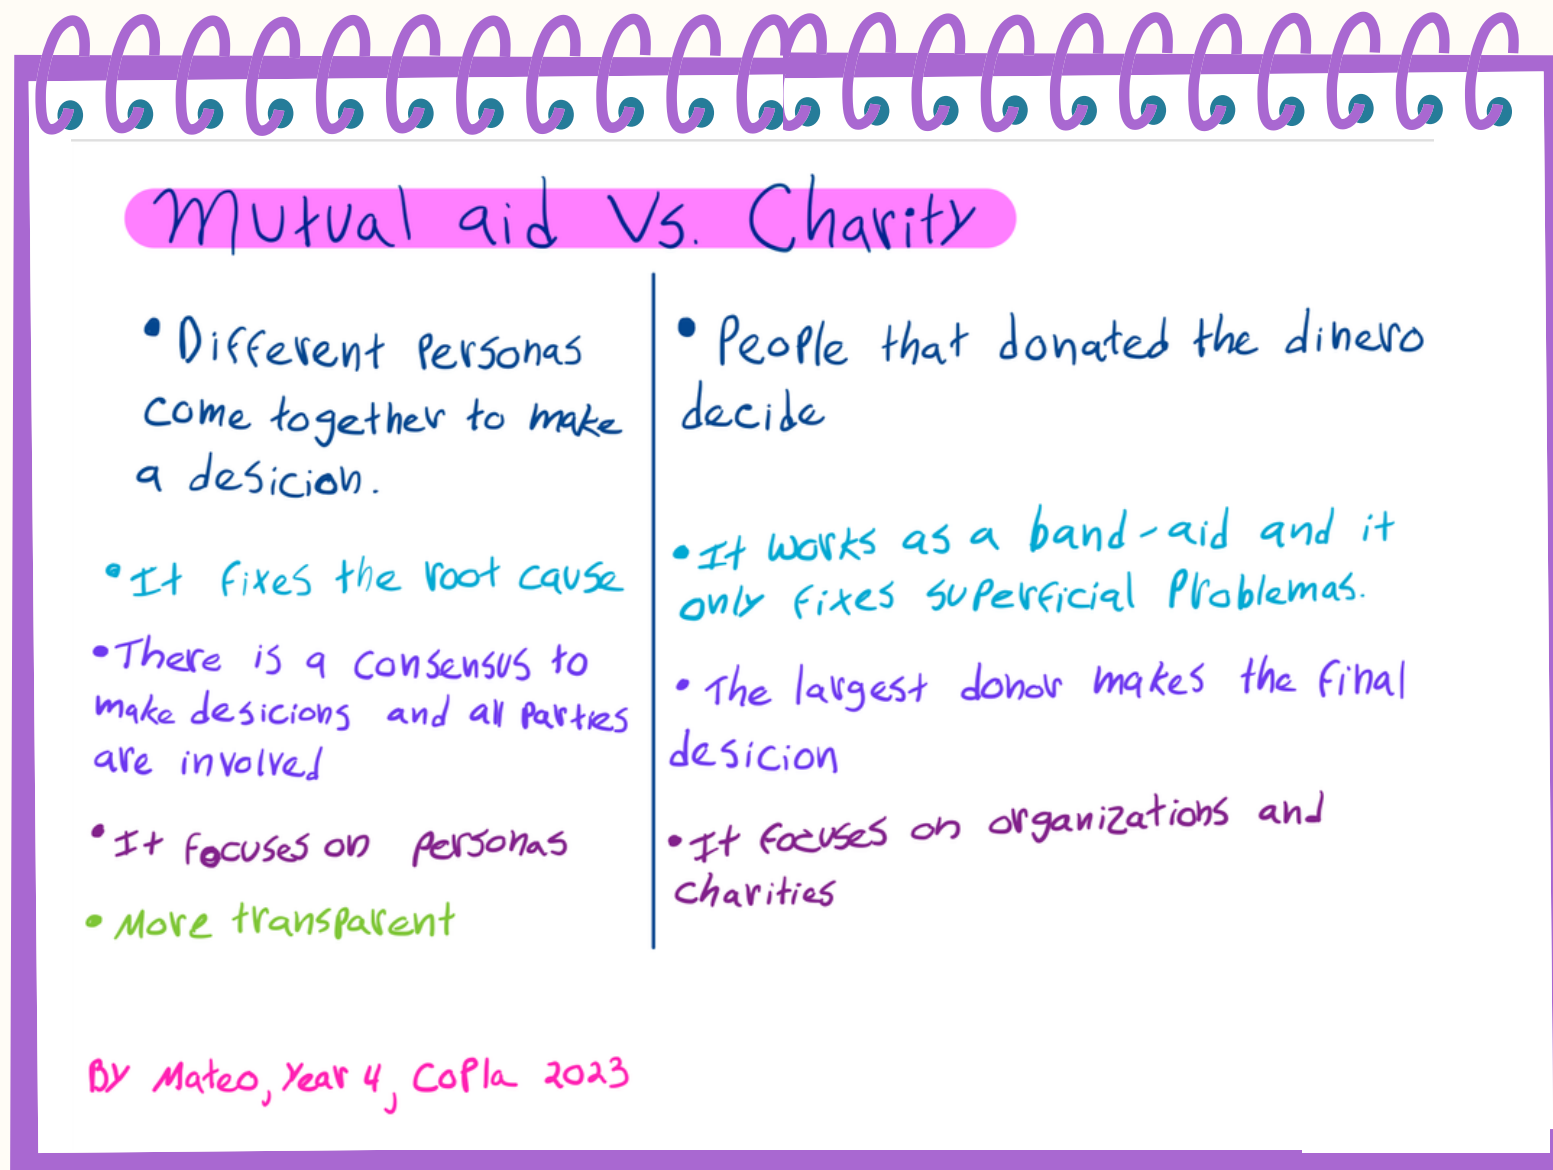 Mutual aid Vs. Charity
• Different Personas
come together to make
a desicion.
• It fixes the root cause
• There is a consensus to
make desicions and all parties
are involved
• It focuses on personas
• More transparent
• People that donated the dinero
decide
• It works as a band-aid and it
only fixes superficial Problemas.
• The largest donor makes the final
desicion
• It focuses on organizations and
charities
By Mateo, Year 4, CoPla 2023